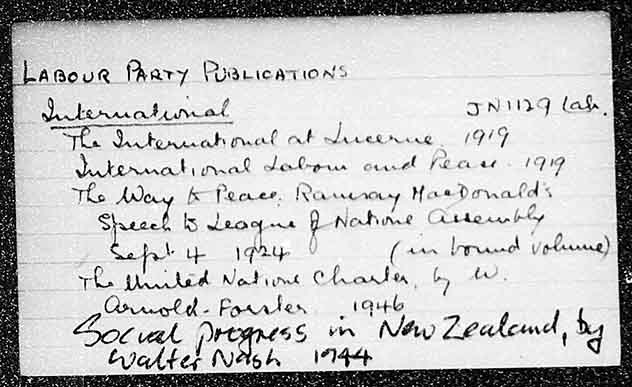 LABOUR PARTY PUBLICATIONS
International JN1129 Lab.
The International at Lucerne 1919
International Labour and Peace. 1919
The Way to Peace, Ramsay MacDonald's
Speech to League of Nations Assembly
Sept 4 1924 (in bound volume)
The United Nations Charter, by W.
Arnold-Forster 1946
Social progress in New Zealand, by
Walter Nash 1944